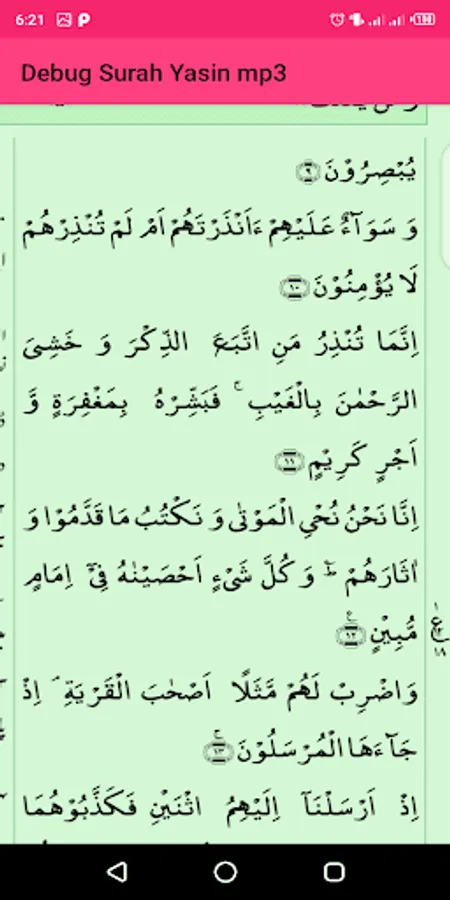 6:21
188
Debug Surah Yasin mp3
يُبْصِرُوْنَ ﴿٩﴾
وَ سَوَآءٌ عَلَيْهِمْ ءَاَنْذَرْتَهُمْ اَمْ لَمْ تُنْذِرْهُمْ
لَا يُؤْمِنُوْنَ ﴿١٠﴾
اِنَّمَا تُنْذِرُ مَنِ اتَّبَعَ الذِّكْرَ وَ خَشِىَ
الرَّحْمٰنَ بِالْغَيْبِ ۚ فَبَشِّرْهُ بِمَغْفِرَةٍ وَّ
اَجْرٍ كَرِيْمٍ ﴿١١﴾
اِنَّا نَحْنُ نُحْىِ الْمَوْتٰى وَ نَكْتُبُ مَا قَدَّمُوْا وَ
اٰثَارَهُمْ ؕ وَ كُلَّ شَىْءٍ اَحْصَيْنٰهُ فِىْۤ اِمَامٍ
مُّبِيْنٍ ﴿١٢﴾
ع
١٨
وَاضْرِبْ لَهُمْ مَّثَلًا اَصْحٰبَ الْقَرْيَةِ ۘ اِذْ
جَآءَهَا الْمُرْسَلُوْنَ ﴿١٣﴾
اِذْ اَرْسَلْنَاۤ اِلَيْهِمُ اثْنَيْنِ فَكَذَّبُوْهُمَا